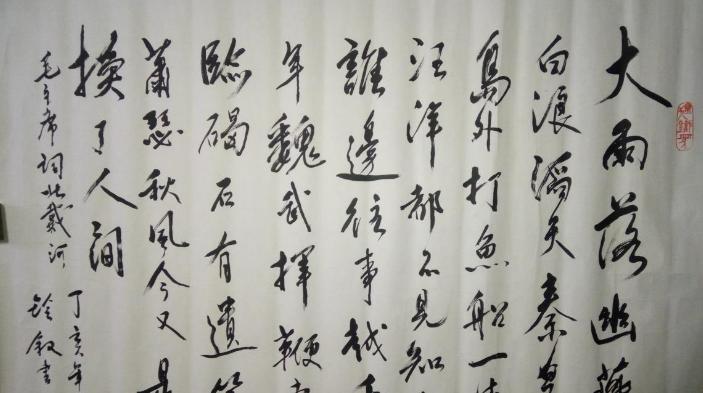 大雨落幽燕
白浪滔天秦皇
島外打魚船一片
汪洋都不見知
誰邊往事越千
年魏武揮鞭東
臨碣石有遺篇
蕭瑟秋風今又是
換了人間
毛主席词北戴河
丁亥年
叙书